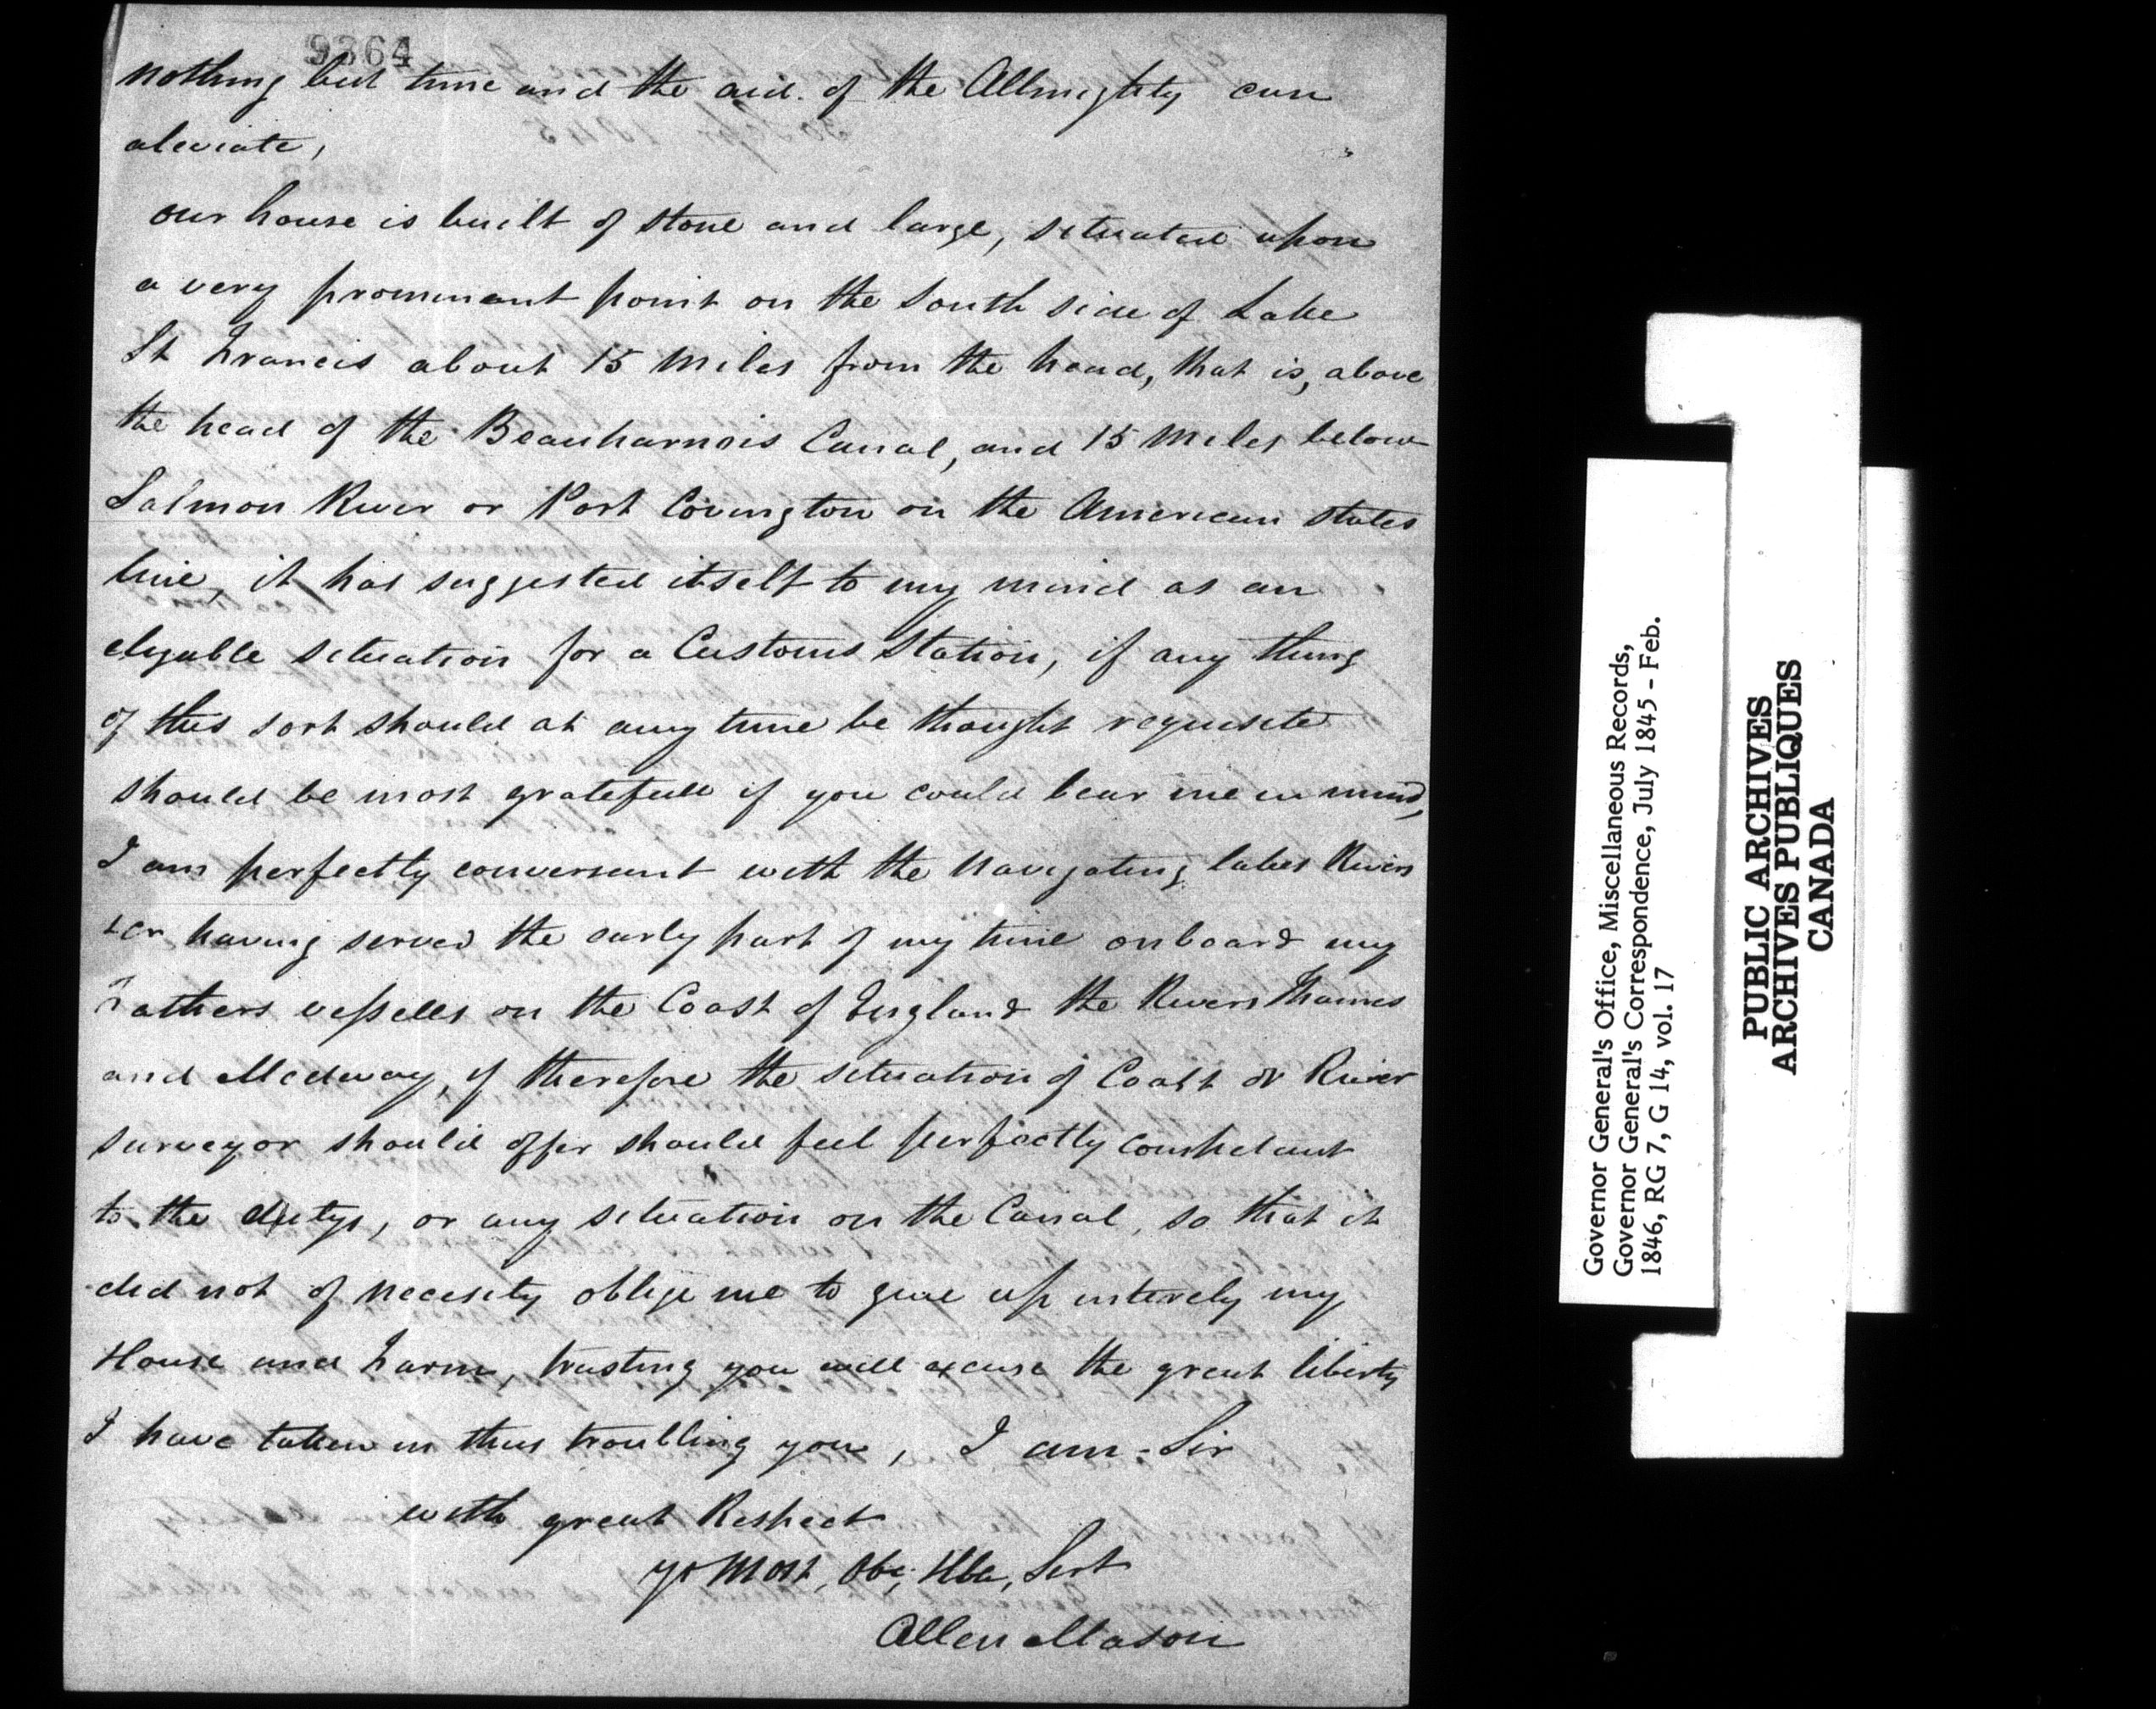 9364
nothing but time and the aid. of the Allmighty can
aleviate,
our house is built of stone and large, situated upon
a very prominant point on the South side of Lake
St Francis about 15 Miles from the head, that is, above
the head of the Beauharnois Canal, and 15 Miles below
Salmon River or Port Covington on the American states
line, it has suggested itself to my mind as an
elegable situation for a Customs Station, if any thing
of this sort should at any time be thought requisite
should be most gratefull if you could bear me in mind,
I am perfectly conversant with the Navigating lakes Rivers
&c having served the early part of my time onboard my
Fathers vesselles on the Coast of England the Rivers Thames
and Medway, if therefore the situation of Coast or River
surveyor should offer should feel perfectly compatant
to the dutys, or any situation on the Canal, so that it
did not of necesity oblige me to give up intirely my
House and Farm, trusting you will excuse the great liberty
I have taken in thus troubling you, I am - Sir
with great Respect
yr Most, Obt, Hble, Sert
Allen Mason
Governor General's Office, Miscellaneous Records,
Governor General's Correspondence, July 1845 - Feb.
1846, RG 7, G 14, vol. 17
PUBLIC ARCHIVES
ARCHIVES PUBLIQUES
CANADA